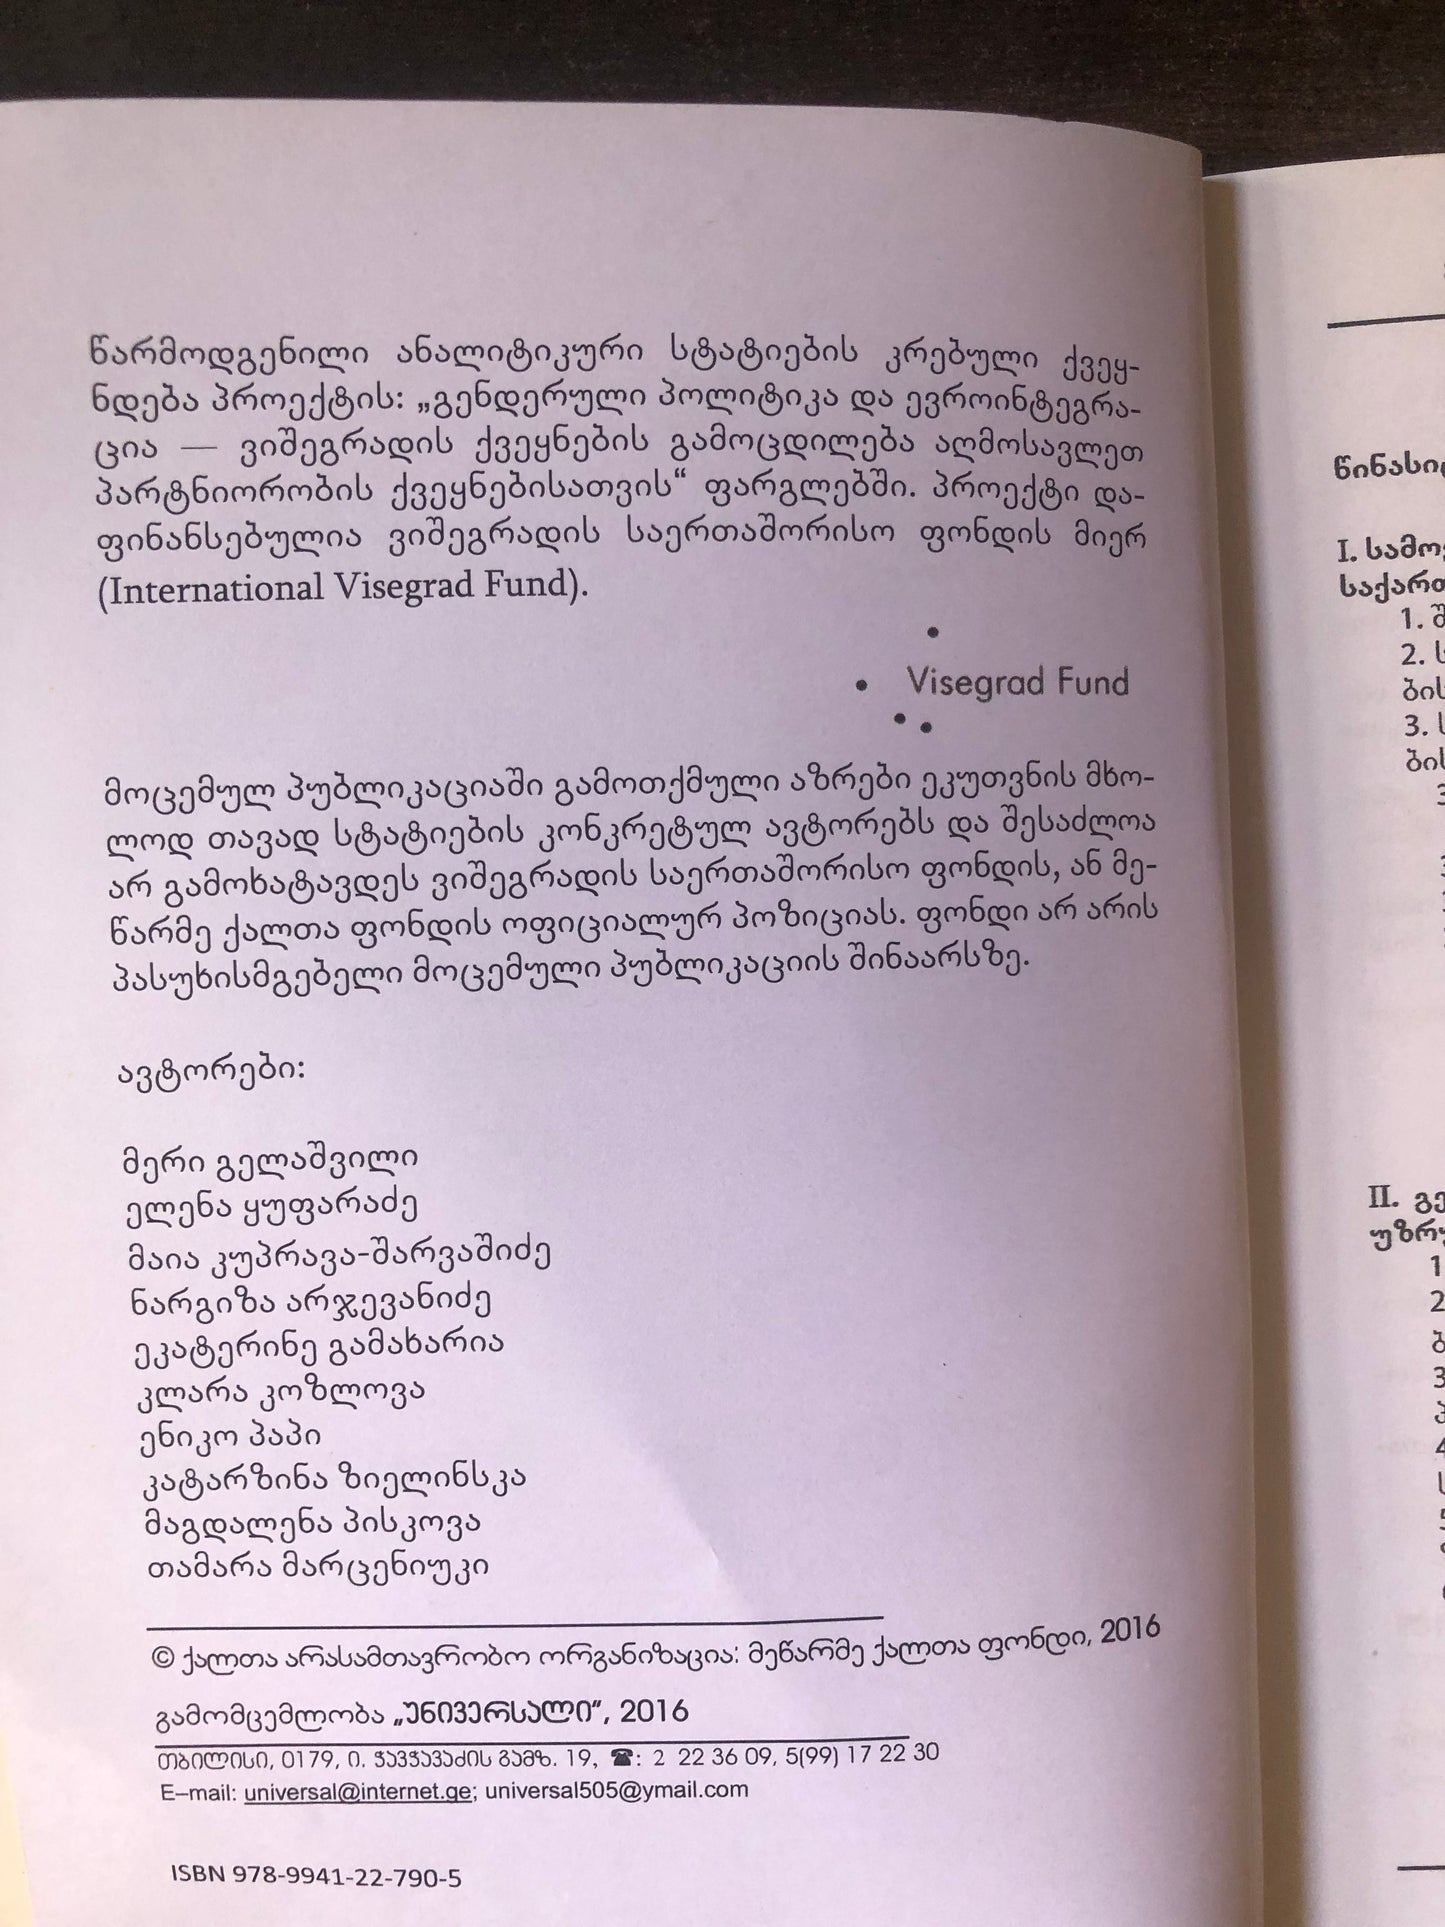 წარმოდგენილი ანალიტიკური სტატიების კრებული ქვეყ-
ნდება პროექტის: „გენდერული პოლიტიკა და ევროინტეგრა-
ცია — ვიშეგრადის ქვეყნების გამოცდილება აღმოსავლეთ
პარტნიორობის ქვეყნებისათვის“ ფარგლებში. პროექტი და-
ფინანსებულია ვიშეგრადის საერთაშორისო ფონდის მიერ
(International Visegrad Fund).
Visegrad Fund
მოცემულ პუბლიკაციაში გამოთქმული აზრები ეკუთვნის მხო-
ლოდ თავად სტატიების კონკრეტულ ავტორებს და შესაძლოა
არ გამოხატავდეს ვიშეგრადის საერთაშორისო ფონდის, ან მე-
წარმე ქალთა ფონდის ოფიციალურ პოზიციას. ფონდი არ არის
პასუხისმგებელი მოცემული პუბლიკაციის შინაარსზე.
ავტორები:
მერი გელაშვილი
ელენა ყუფარაძე
მაია კუპრავა-შარვაშიძე
ნარგიზა არჯევანიძე
ეკატერინე გამახარია
კლარა კოზლოვა
ენიკო პაპი
კატარზინა ზიელინსკა
მაგდალენა პისკოვა
თამარა მარცენიუკი
© ქალთა არასამთავრობო ორგანიზაცია: მეწარმე ქალთა ფონდი, 2016
გამომცემლობა „უნივერსალი“, 2016
თბილისი, 0179, ი. ჭავჭავაძის გამზ. 19, ☎: 2 22 36 09, 5(99) 17 22 30
E–mail: universal@internet.ge; universal505@ymail.com
ISBN 978-9941-22-790-5
I.
1.
2.
3.
II.
1
2
3
4